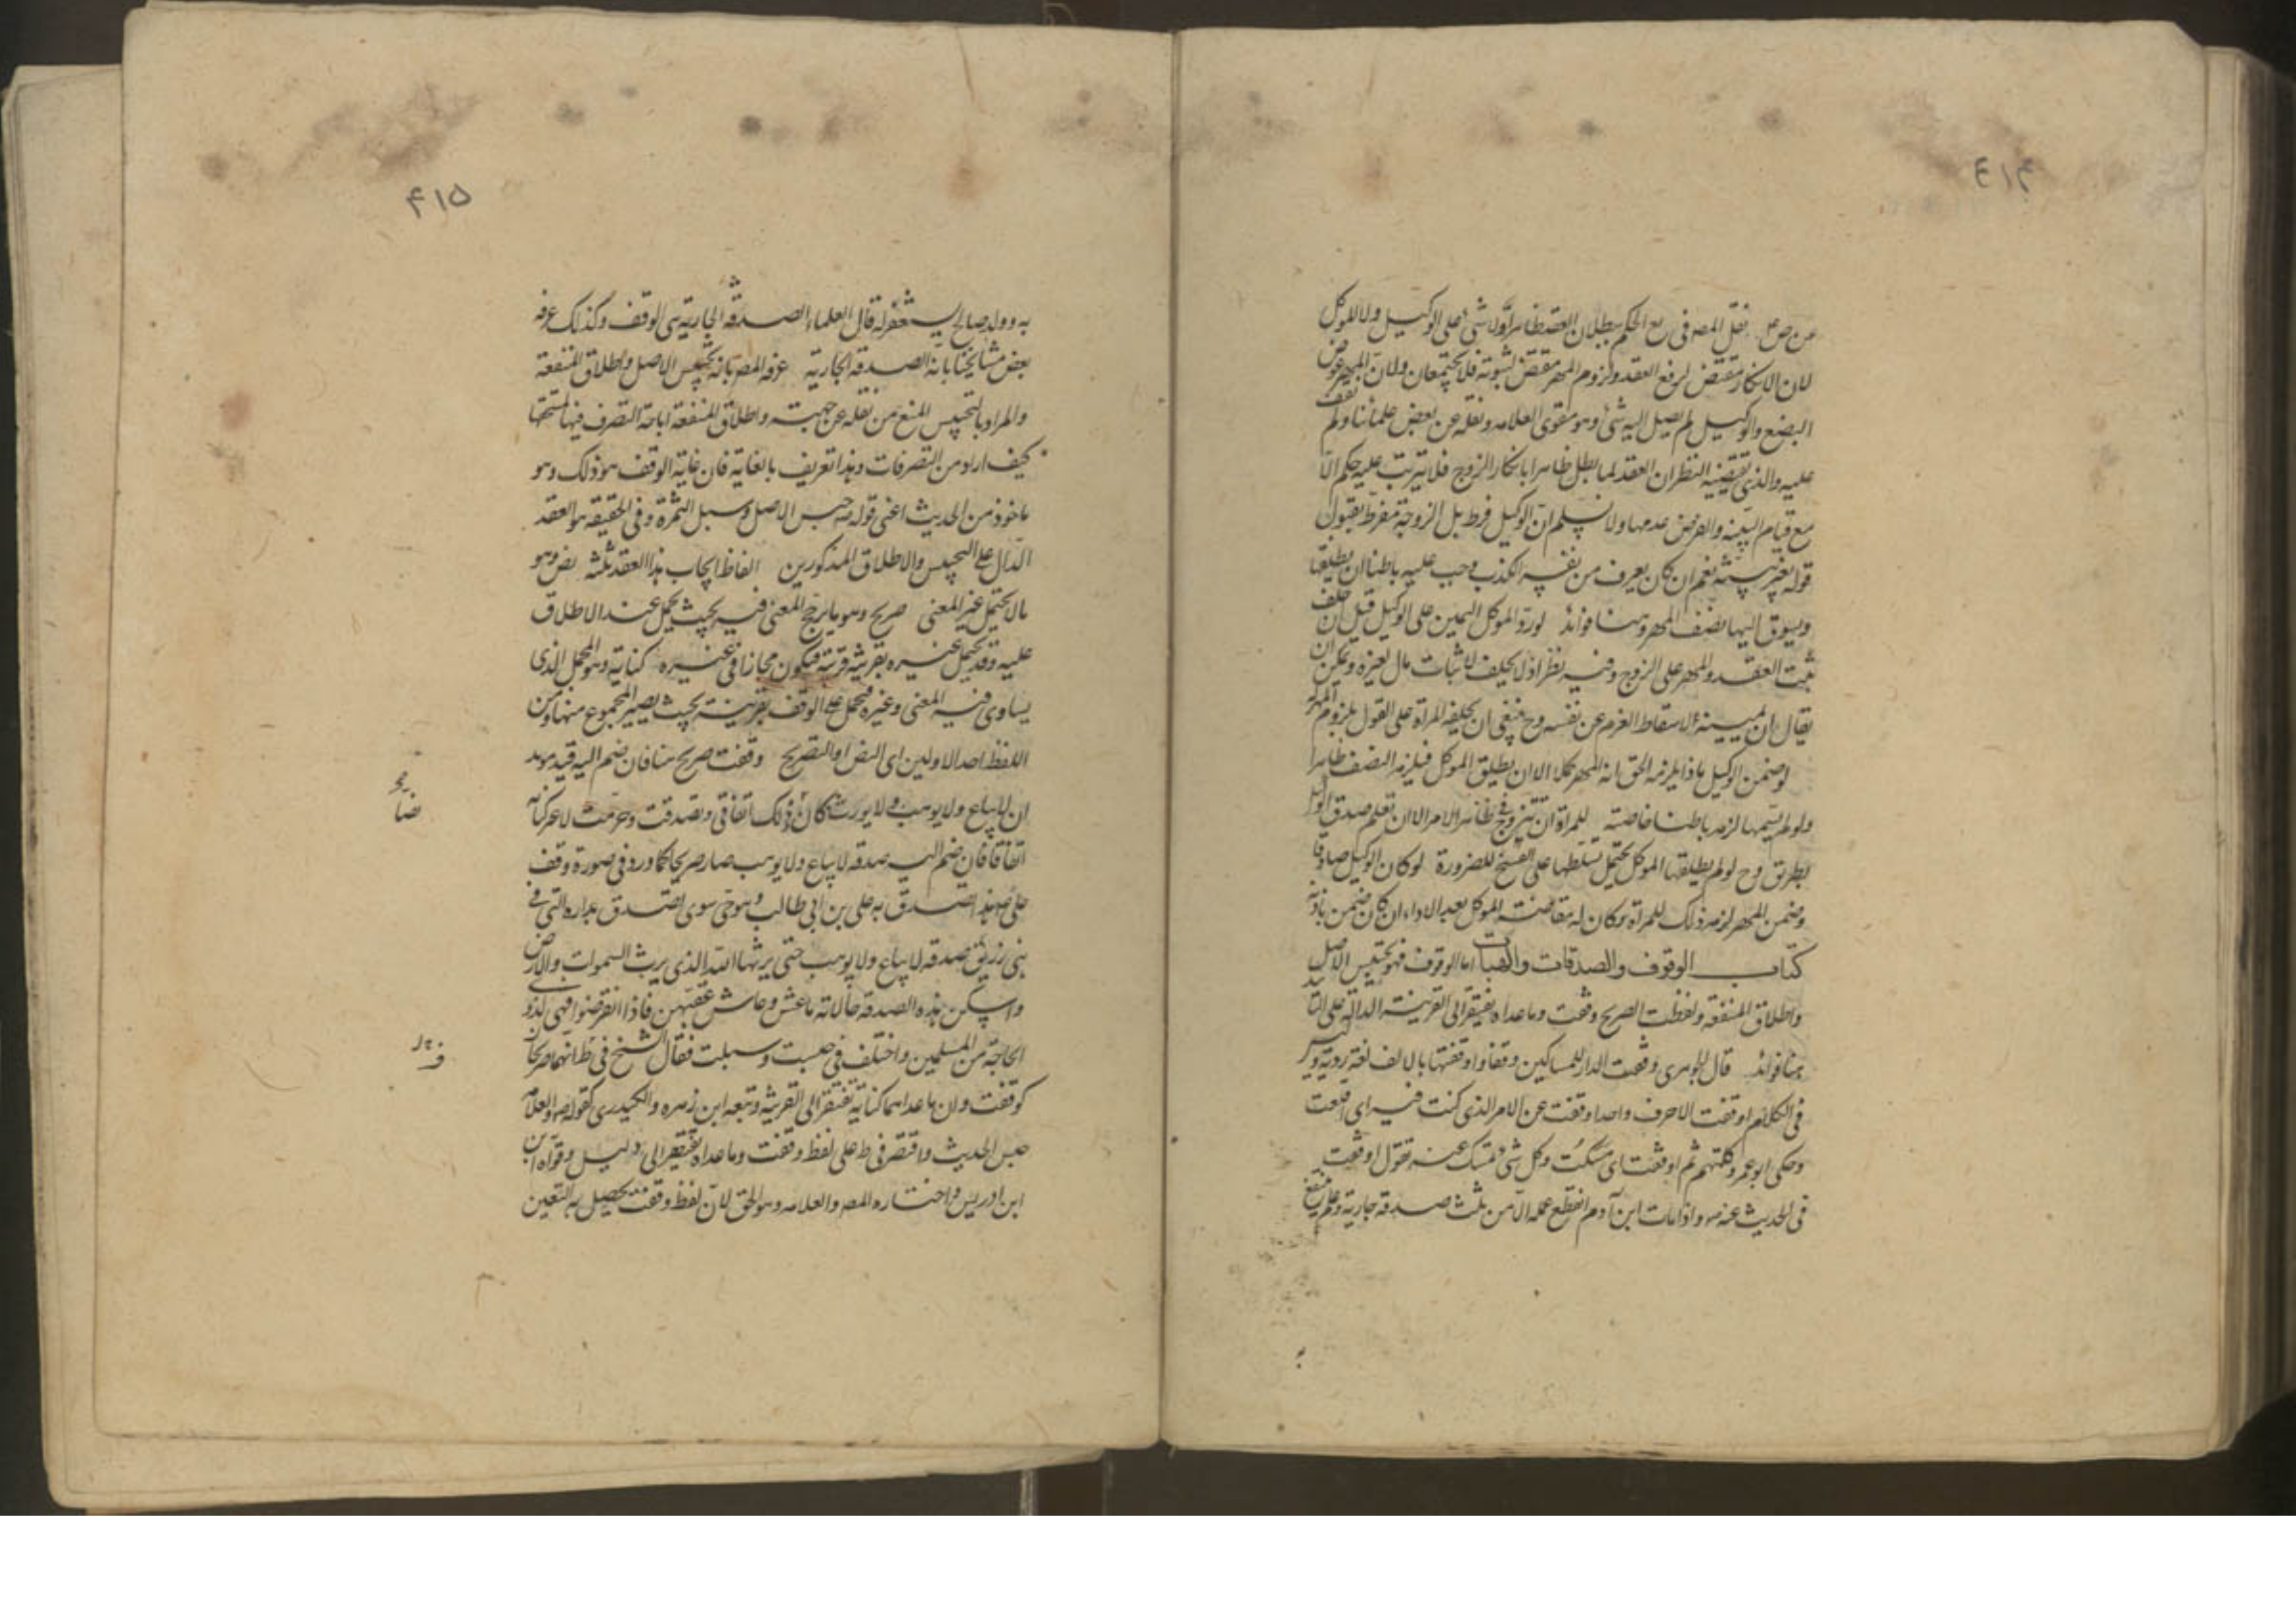 ٤١٤
من ص ع نقل المصه فى يع الحكم ببطلان العقد ظاهرا ولا شئ على الوكيل ولا للموكل
لان الانكار مقتض لرفع العقد ولزوم المهر مقتض لثبوته فلا يجتمعان ولان المهر عوض
البضع والوكيل لم يصل اليه شئ وهو مقوى العلامه ونقله عن بعض علمائنا ولم نقف
عليه والذى يقتضيه النظر ان العقد لما بطل ظاهرا بانكار الزوج فلا يترتب عليه حكم الا
مع قيام البينه والفرض عدمها ولا نسلم ان الوكيل فرط بل الزوجة مفرطة بقبول
قوله بغير بينة نعم ان كان يعرف من نفسه الكذب وجب عليه باطنا ان يطلقها
ويسوق اليها نصف المهر وهنا فوائد لورد الموكل اليمين على الوكيل قيل ان حلف
ثبت العقد والمهر على الزوج وفيه نظر اذ لا يحلف لاثبات مال لغيره ويمكن ان
يقال ان يمينه لاسقاط الغرم عن نفسه وح ينبغى ان يحلفه المرأة على القول بلزوم المهر
لو ضمن الوكيل ماذا يلزمه الحق انه المهر كملا الا ان يطلق الموكل فيلزمه النصف ظاهرا
ولو لم يسمها لزمه باطنا خاصة للمرأة ان تتزوج فى ظاهر الامر الا ان تعلم صدق الوكيل
بطريق وح لو لم يطلقها الموكل يحتمل تسلطها على الفسخ للضرورة لو كان الوكيل صادقا
وضمن المهر لزمه ذلك للمرأة وكان له مقاصة الموكل بعد الاداء ان كان ضمن باذنه
كتاب الوقوف والصدقات والهبات اما الوقوف فهو تحبيس الاصل
واطلاق المنفعة ولفظه الصريح وقفت وما عداه يفتقر الى القرينة الدالة على التأبيد
هنا فوائد قال الجوهرى وقفت الدار للمساكين وقفا واوقفتها بالالف لغة ردية وليس
فى الكلام اوقفت الا حرف واحد اوقفت عن الامر الذى كنت فيه اى اقلعت
وحكى ابو عمرو كلمتهم ثم اوقفت اى سكت وكل شئ تمسك عنه تقول اوقفت
فى الحديث عنه ص واذا مات ابن آدم انقطع عمله الا من ثلث صدقة جارية وعلم ينتفع
به
٤١٥
به وولد صالح يستغفر له قال العلماء الصدقة الجارية هى الوقف وكذلك عرفه
بعض مشايخنا بانه الصدقة الجارية عرفه المصه بانه تحبيس الاصل واطلاق المنفعة
والمراد بالتحبيس المنع من نقله عن جهته واطلاق المنفعة اباحة التصرف فيها لمستحقها
كيف اراد من التصرفات وهذا تعريف بالغاية فان غاية الوقف هو ذلك وهو
ماخوذ من الحديث اعنى قوله ص حبس الاصل وسبل الثمرة وفى الحقيقة هو العقد
الدال على التحبيس والاطلاق المذكورين الفاظ ايجاب هذا العقد ثلثه نص وهو
مالا يحتمل غير المعنى صريح وهو ما يرجح المعنى فيه بحيث يحمل عند الاطلاق
عليه وقد يحتمل غيره بقرينة فيكون مجازا فى غيره كناية وهو المجمل الذى
يساوى فيه المعنى وغيره فيحمل على الوقف بقرينة بحيث يصير المجموع منها ومن
اللفظ احد الاولين اى النص او الصريح وقفت صريح هنا فان ضم اليه قيد مؤبد
ان لا يباع ولا يوهب ولا يورث كان ذلك اتفاقى وتصدقت وحرمت لاحركناية
اتفاقا فان ضم اليه صدقه لا يباع ولا يوهب صار صريحا كما ورد فى صورة وقف
على ع هذا ما تصدق به على بن ابى طالب وهو حى سوى تصدق بداره التى فى
بنى زريق صدقه لا يباع ولا يوهب حتى يرثها الله الذى يرث السموات والارض
واسكن هذه الصدقه خالاته ما عشن وعاش عقبهن فاذا انقرضوا فهى لذوى
الحاجة من المسلمين واختلف فى حبست وسبلت فقال الشيخ فى ظ انهما صريحان
كوقفت وان ما عداهما كناية تفتقر الى القرينة وتبعه ابن زهره والكيدرى كقوله ص والعلامه
حبس الحديث واقتصر فى ط على لفظ وقفت وما عداه يفتقر الى دليل وقواه ابن
ابن ادريس واختاره المصه والعلامه وهو الحق لان لفظ وقفت يحصل به التعين